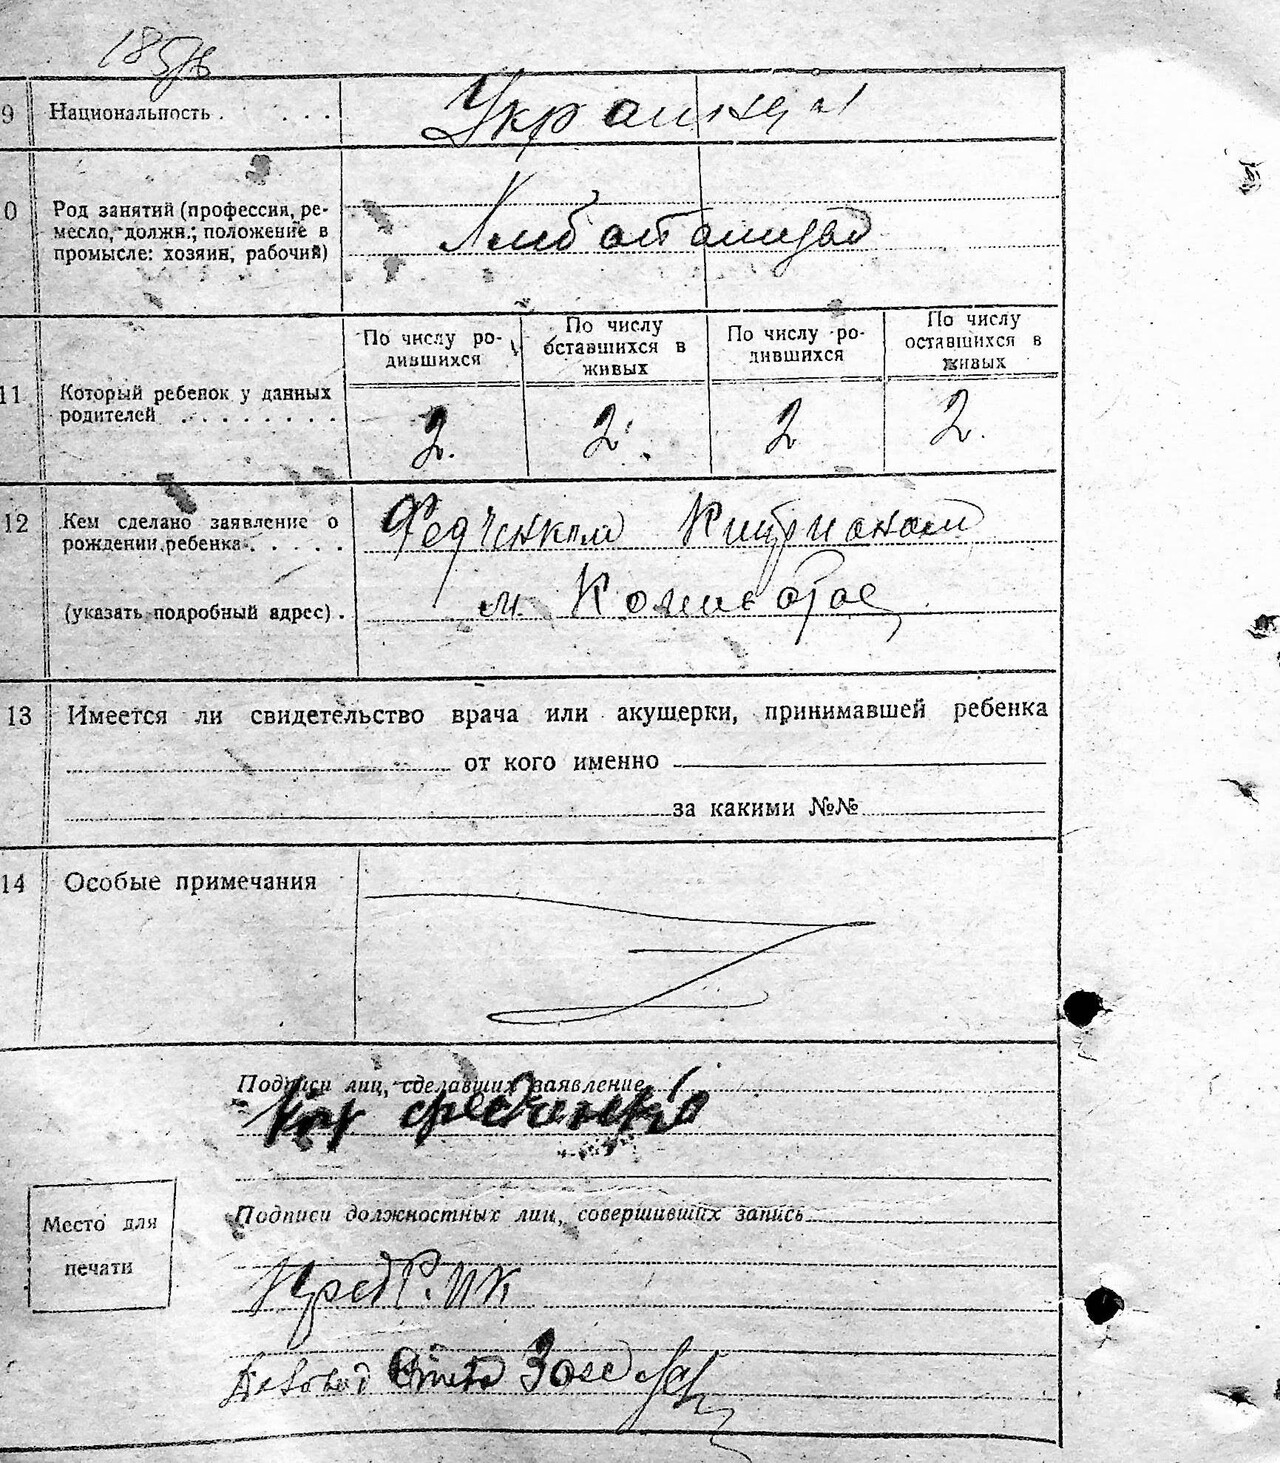 9 Национальность . . . . Украинцы
10 Род занятий (профессия, ре-
месло, должн.; положение в
промысле: хозяин, рабочий)
По числу ро-
дившихся
По числу
оставшихся в
живых
По числу ро-
дившихся
По числу
оставшихся в
живых
11 Который ребенок у данных
родителей . . . . . . . . 2. 2. 2 2.
12 Кем сделано заявление о
рождении ребенка . . . . . Федченком
(указать подробный адрес) . м.
13 Имеется ли свидетельство врача или акушерки, принимавшей ребенка
от кого именно
за какими №№
14 Особые примечания
Подписи лиц, сделавших заявление
Федченко
Место для
печати
Подписи должностных лиц, совершивших запись
Пред Р.ИК